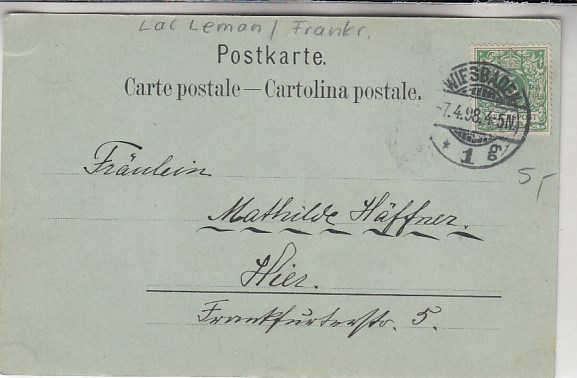 Lac Leman / Frankr.
Postkarte.
Carte postale — Cartolina postale.
WIESBADEN
-7.4.98.4-5N.
* 1 g
5,-
Fräulein
Mathilde Häffner.
Hier.
Frankfurterstr. 5.